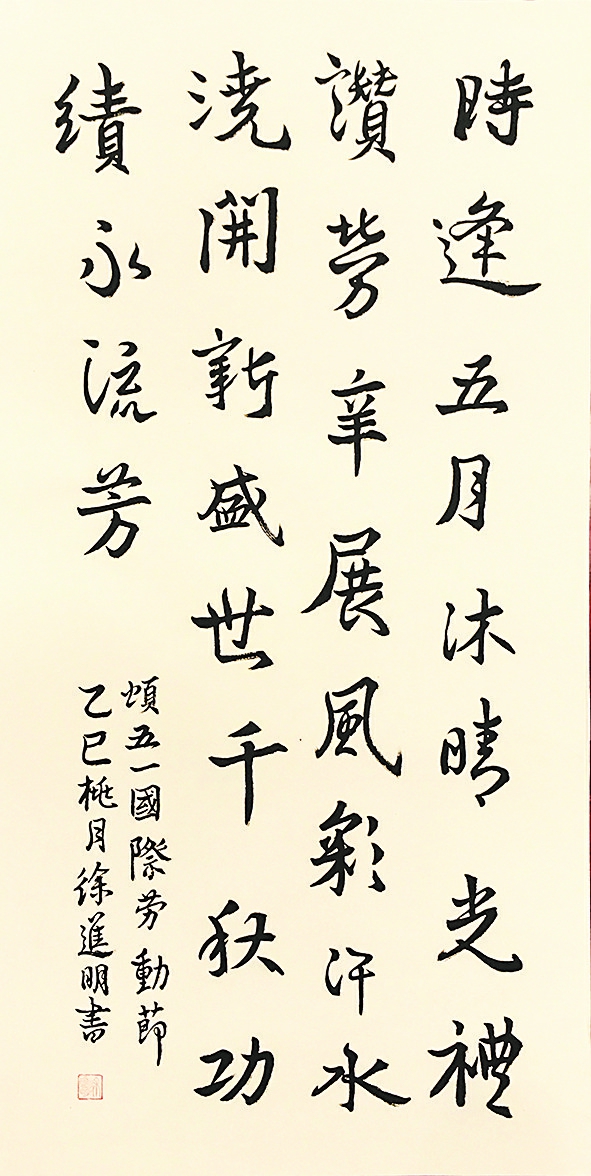 時逢五月沐晴光禮
讚勞辛展風彩汗水
澆開新盛世千秋功
績永流芳
頌五一國際劳動節
乙巳桃月徐進明書